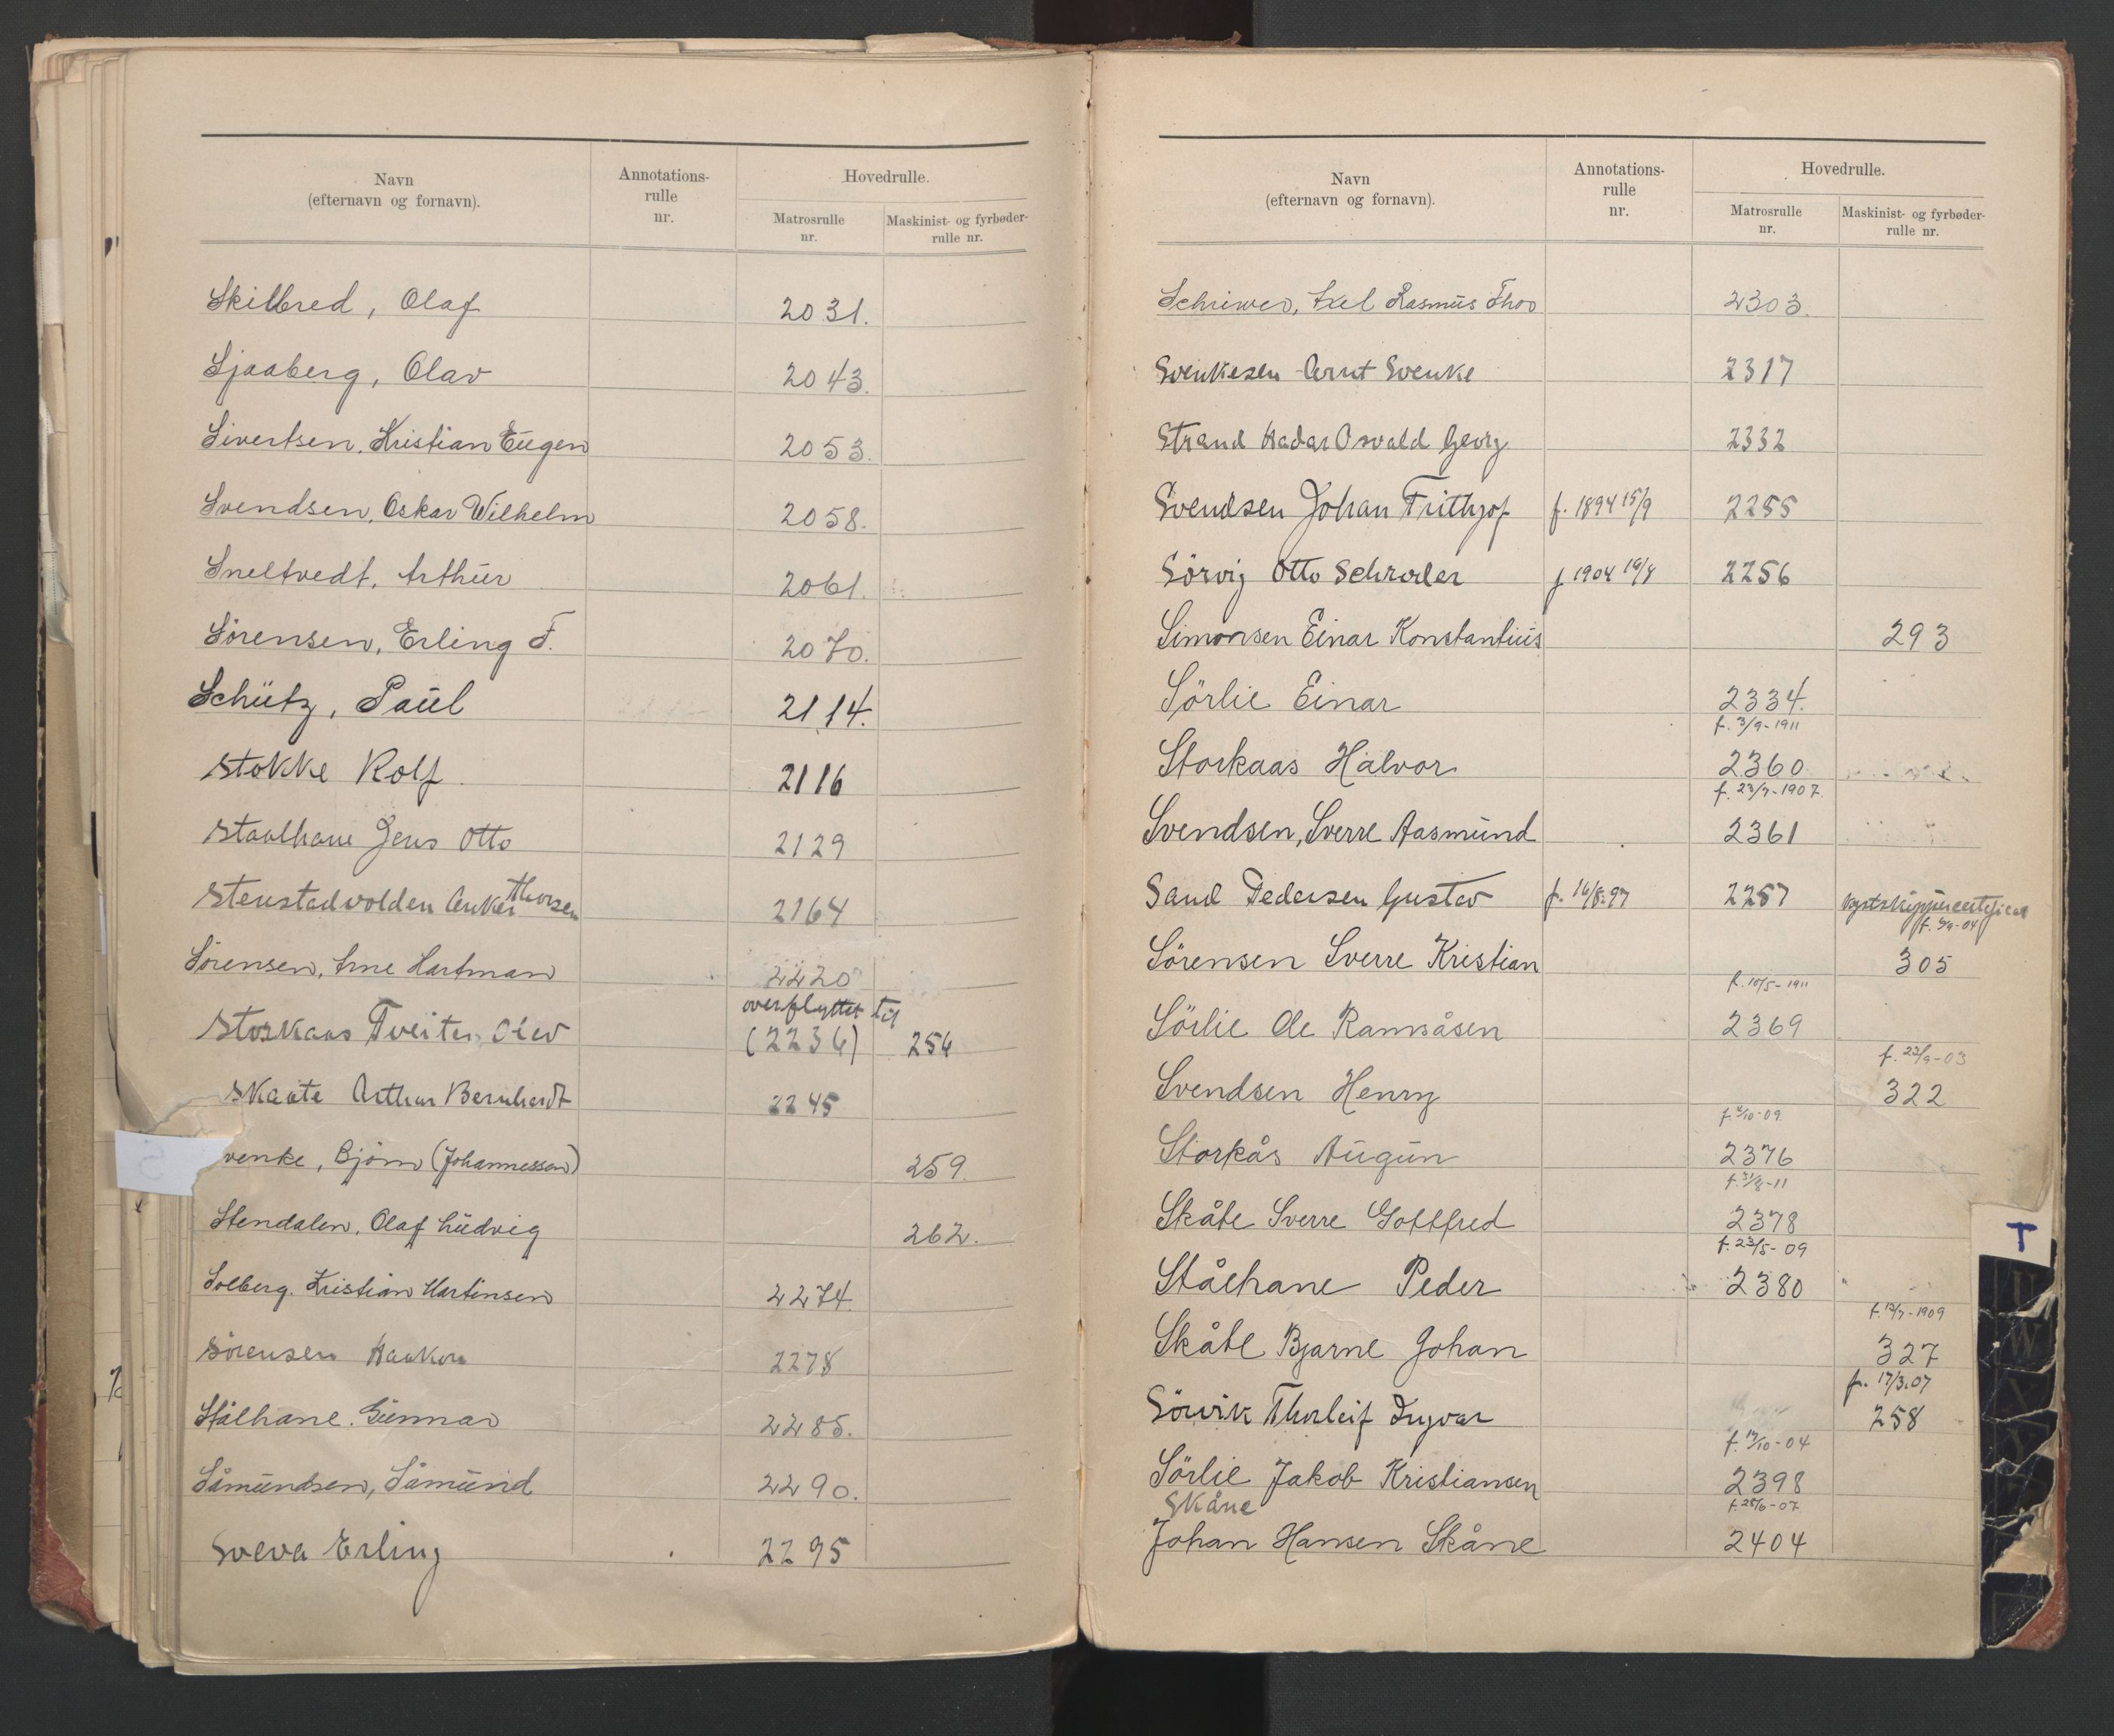 Navn
(efternavn og fornavn).
Annotations-
rulle
nr.
Hovedrulle.
Matrosrulle
nr.
Maskinist- og fyrbøder-
rulle nr.
Skilbred, Olaf 2031.
Sjaaberg, Olav 2043.
Sivertsen, Kristian Eugen 2053.
Svendsen, Oskar Wilhelm 2058.
Sneltvedt, Arthur 2061.
Sørensen, Erling F. 2070.
Schütz, Paul 2114.
Stokke Rolf 2116
Staalhane Jens Otto 2129
Thorsen
Stenstadvolden Anker 2164
Sørensen, Arne Hartman 2220
overflyttet til
Storkaas Tveiten Olev (2236) 254
Skaate Arthur Bernhardt 2245
venke, Bjørn (Johannessen) 259.
Stendalen, Olaf Ludvig 262.
Solberg, Kristian Martinsen 2274.
Sörensen Haakon 2278
Stålhane, Gunnar 2285.
Såmundsen, Såmund 2290.
Sveva Erling 2295
S
Navn
(efternavn og fornavn).
Annotations-
rulle
nr.
Hovedrulle.
Matrosrulle
nr.
Maskinist- og fyrbøder-
rulle nr.
Schriwer, Axel Rasmus Thor 2303.
Svenkesen Arnt Svenke 2317
Strand Hadar Osvald Georg 2332
Svendsen Johan Frithjof f. 1894 15/9 2255
Sörvig Otto Schrøder f 1904 2256
Simonsen Einar Konstantius 293
Sörlie Einar 2334.
f. 3/9-1911
Storkaas Halvor 2360
f. 23/7-1907.
Svendsen, Sverre Aasmund 2361
Sand Pedersen Gustav f. 16/8.97 2257 kystskippercertificat
Sörensen Sverre Kristian 305
f. 10/5-1911
Sörlie Ole Ramsåsen 2369
f. 23/9-03
Svendsen Henry 322
Storkås Augun 2376
f. 31/8-11
Skåte Sverre Gottfred 2378
f. 23/5-09
Stålhane Peder 2380
Skåte Bjarne Johan 327
f. 17/3.07
Sörvik Thorleif Ingvar 258
Sörlie Jakob Kristiansen 2398
Skåne
Johan Hansen Skåne 2404
T